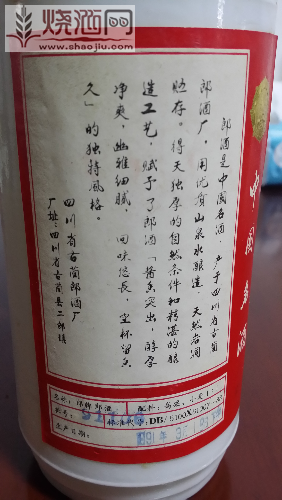 烧酒网
www.shaojiu.com
郎酒是中国名酒,产于四川省古蔺
郎酒厂。用优质山泉水酿造,天然岩洞
贮存。得天独厚的自然条件和精湛的酿
造工艺,赋予了郎酒“酱香突出,醇厚
净爽,幽雅细腻,回味悠长,空杯留香
久”的独特风格。
四川省古蔺郎酒厂
厂址:四川省古蔺县二郎镇
中国名酒
品名:郎牌郎酒
配料:高粱、小麦
批号:
标准代号:
生产日期: